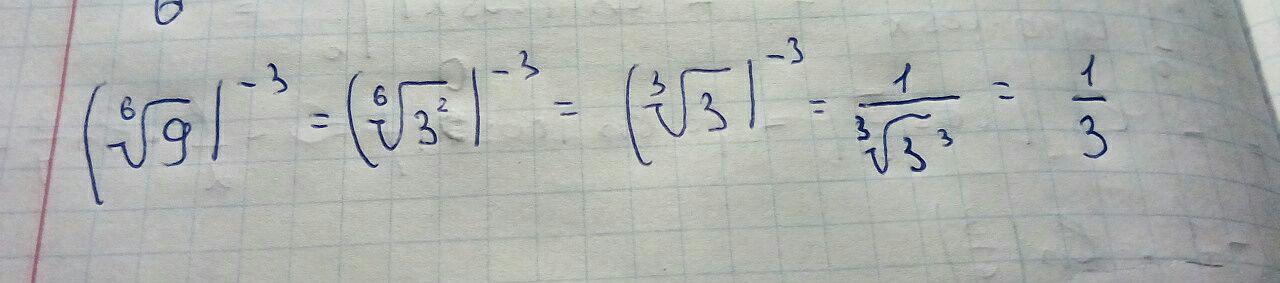 (⁶√9)⁻³ = (⁶√3²)⁻³ = (³√3)⁻³ = 1/³√3³ = 1/3